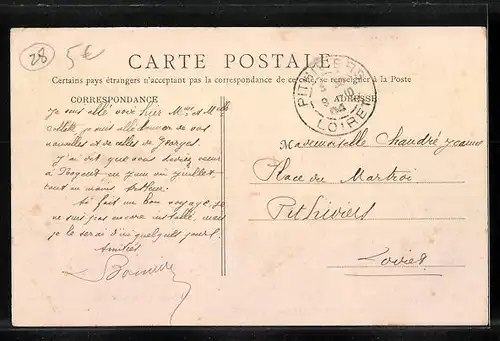 28
5€
CARTE POSTALE
Certains pays étrangers n'acceptant pas la correspondance de ce côté, se renseigner à la Poste
CORRESPONDANCE
Je suis allé voir hier Mme et Mlle
je suis allé donner de vos
nouvelles et de celles de Georges.
J'ai dit que vous deviez venir
à en juin ou juillet,
tout au moins Arthur.
Ai fait un bon voyage, je
ne suis pas encore installé, mais
je le serai d'ici quelques jours.
Amitiés
PITHIVIERS
LOIRET
ADRESSE
Mademoiselle Chaudré Jeanne
Place du Martroi
Pithiviers
Loiret